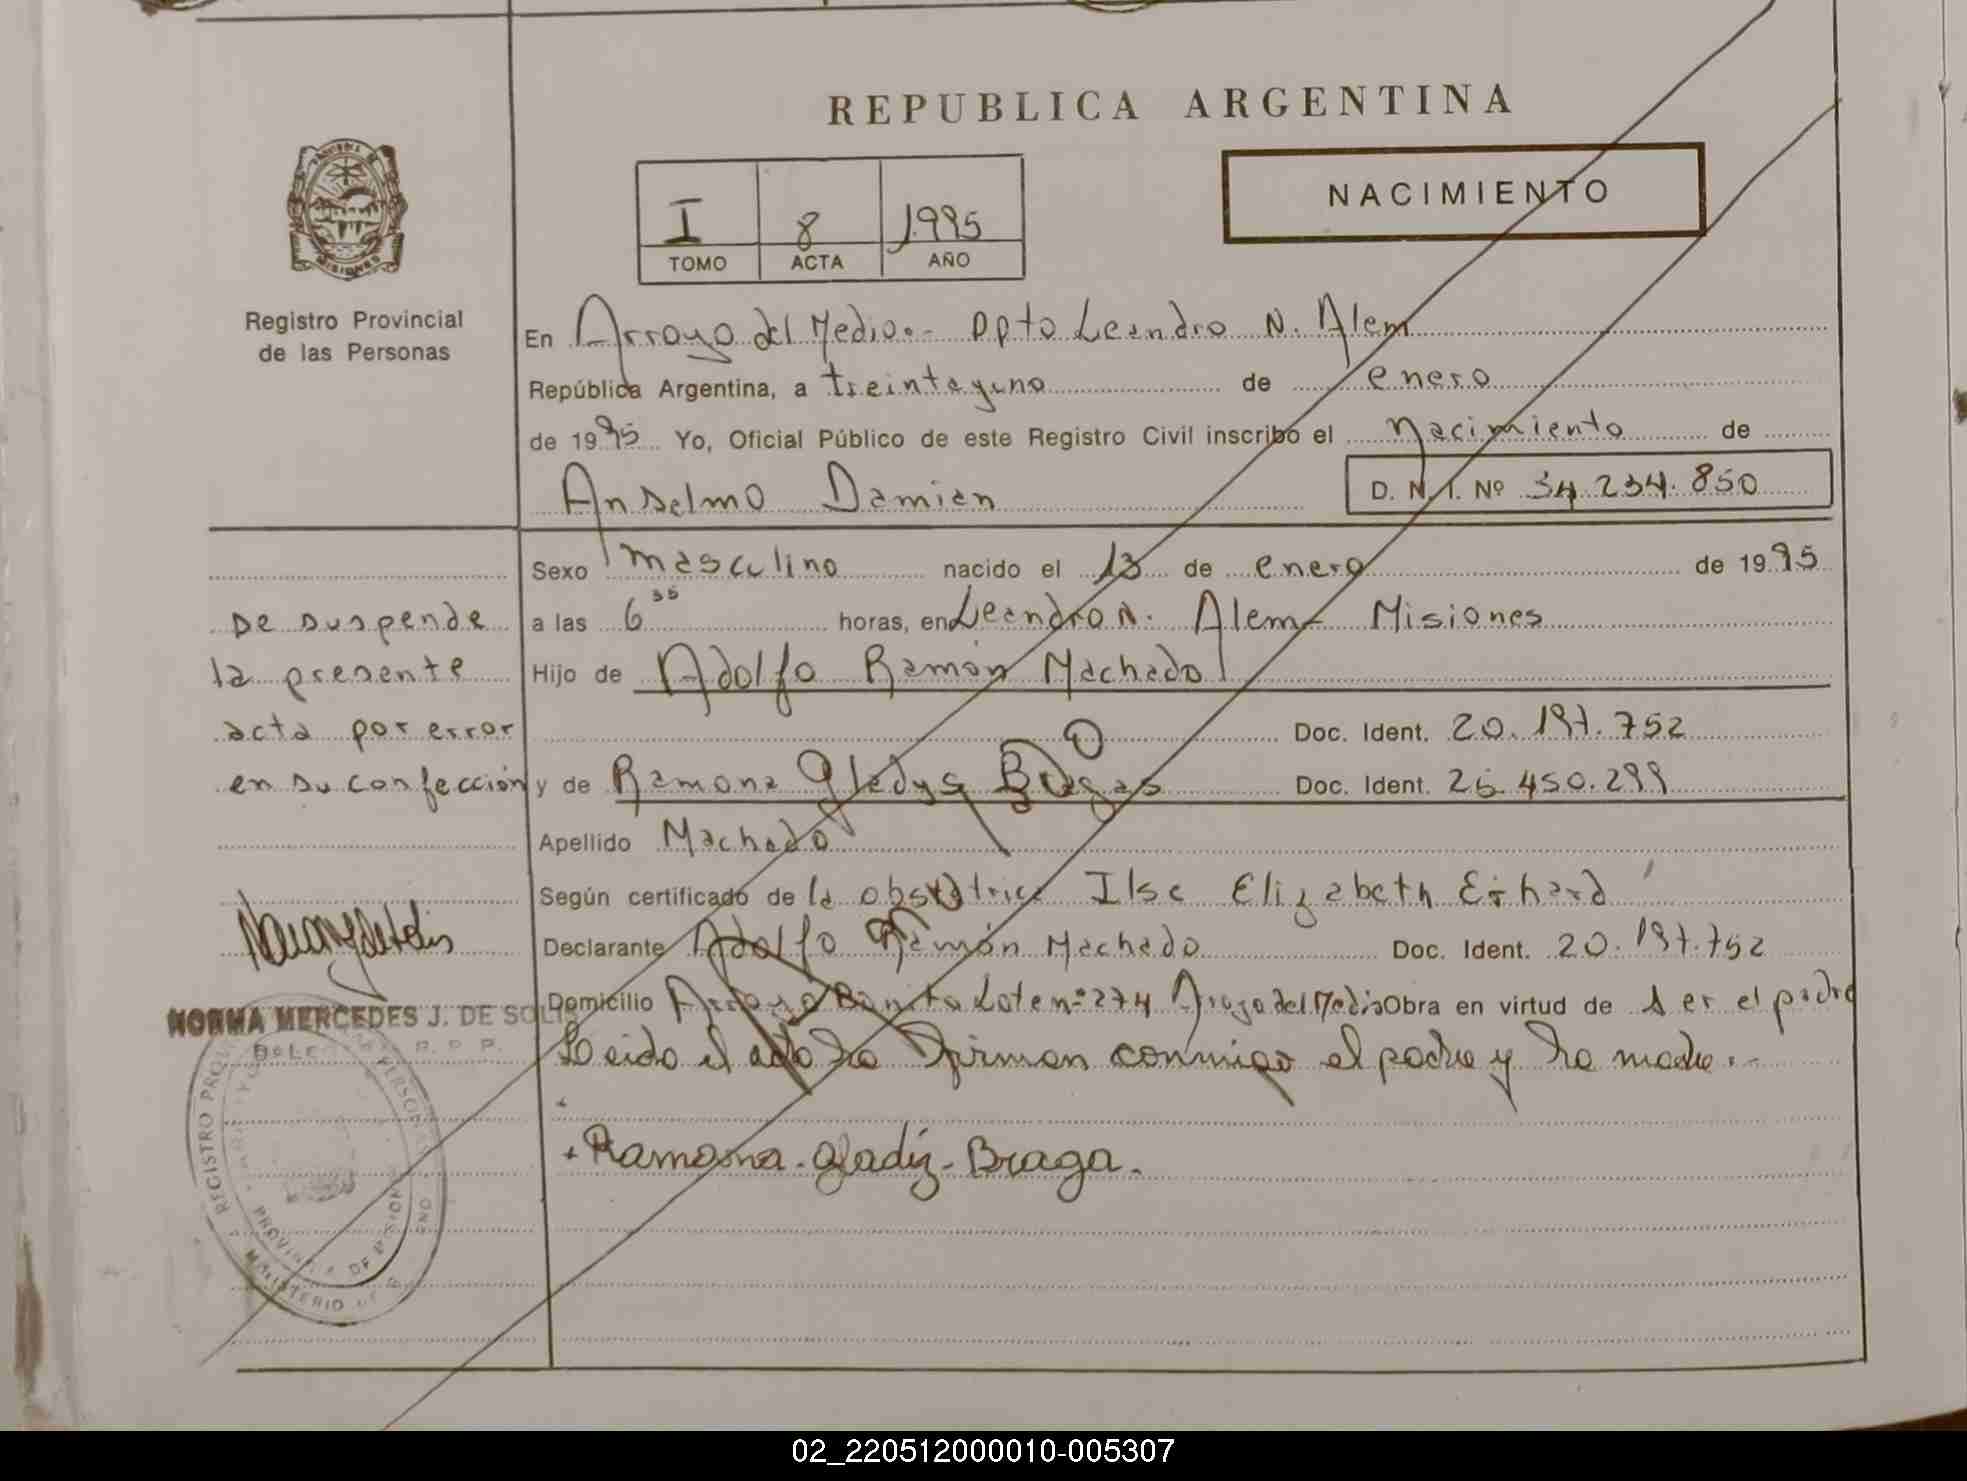 REPUBLICA ARGENTINA
NACIMIENTO
I 8 1995
TOMO ACTA AÑO
Registro Provincial
de las Personas
En Arroyo del Medio.- Dpto Leandro N. Alem
República Argentina, a treintayuno de enero
de 1995 Yo, Oficial Público de este Registro Civil inscribo el nacimiento de
Anselmo Damian D. N. I. Nº 34.234.850
Sexo masculino nacido el 13 de enero de 1995
a las 6 35 horas, en Leandro N. Alem - Misiones
Hijo de Adolfo Ramón Machado
Doc. Ident. 20.197.752
y de Ramona Gladys Doc. Ident. 26.450.299
Apellido Machado
Según certificado de la obstetrica Ilse Elizabeth Erhard
Declarante Adolfo Ramón Machado Doc. Ident. 20.197.752
Domicilio Arroyo Bonito Lote nº 274 Arroyo del Medio Obra en virtud de ser el padre
Leido el acta la firman conmigo el padre y la madre.-
+ Ramona - gladiz - Braga.
se suspende
la presente
acta por error
en su confección
NORMA MERCEDES J. DE SOLIS
REGISTRO PERSONAS
PROVINCIA DE MISIONES
MINISTERIO DE
02_220512000010-005307